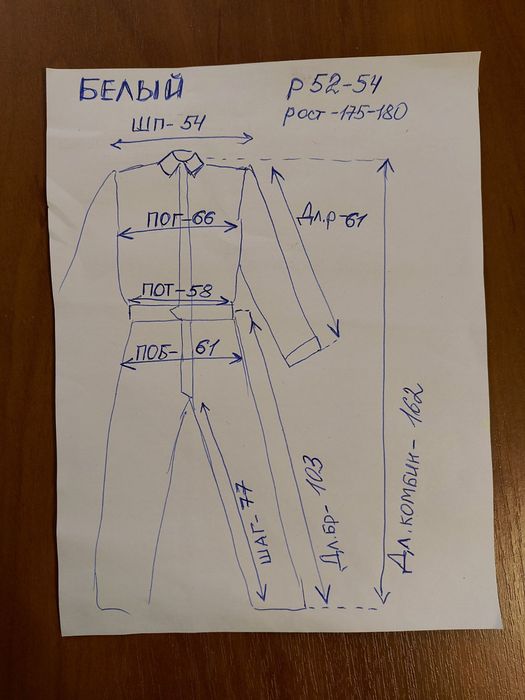 БЕЛЫЙ
р 52-54
рост-175-180
ШП-54
ПОГ-66
Дл.р-61
ПОТ-58
ПОБ-61
ШАГ-77
Дл.бр-103
Дл.комбин-162